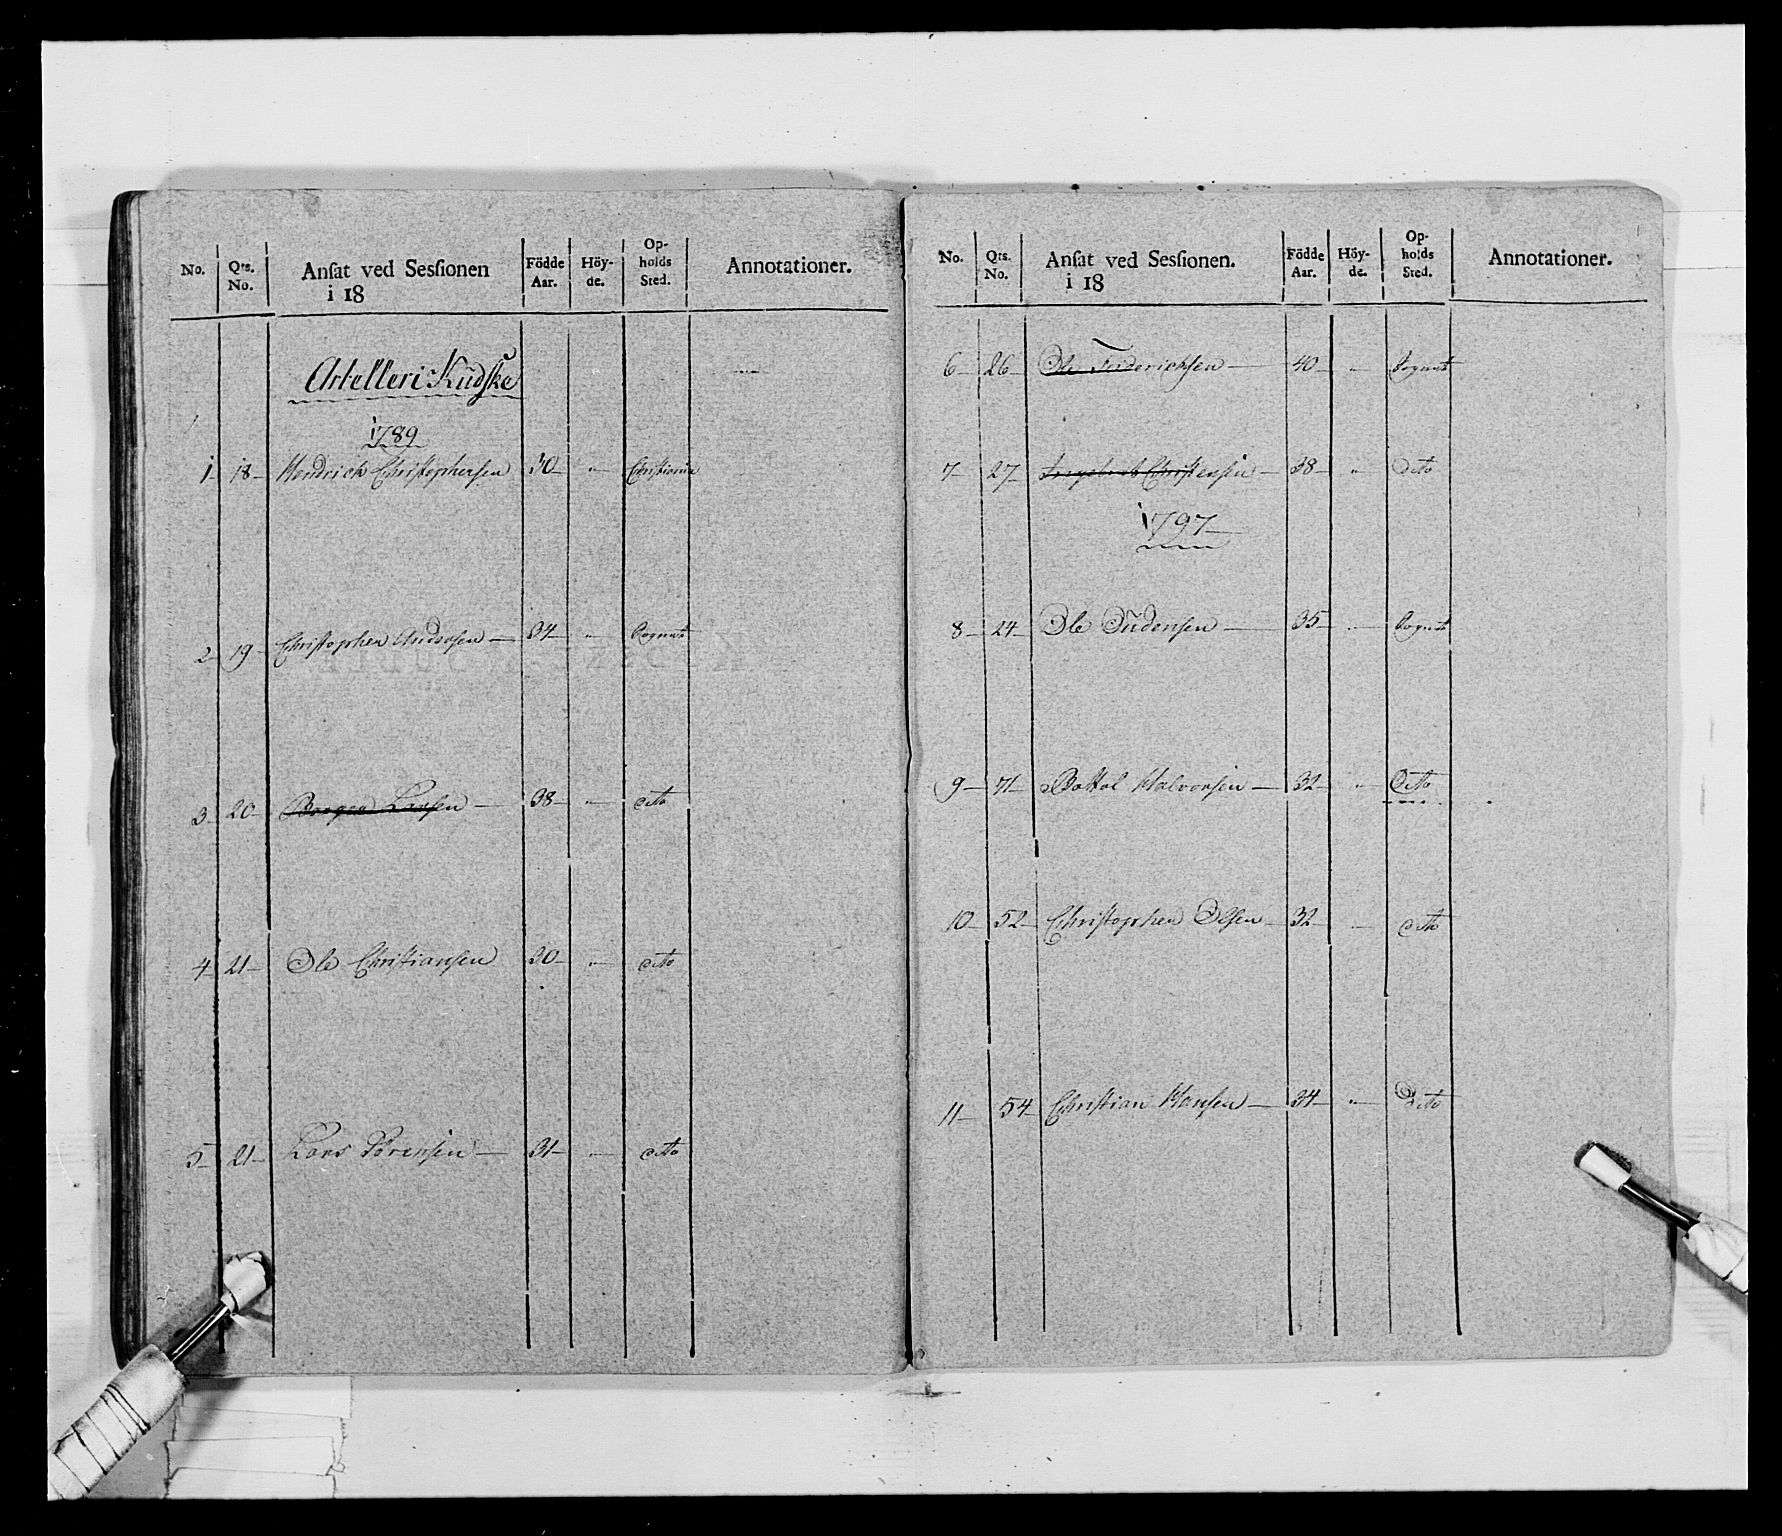 No. Qts. No. Ansat ved Sessionen i 18 Födde Aar. Höyde. Opholds Sted. Annotationer.
Artelleri Kudske
1789
1 18 Hendrich Christophersen 30 " Christiania
2 19 Christopher Andersen 34 "
3 20 Larsen 38 " dito
4 21 Ole Christiansen 30 " dito
5 21 Lars Sörensen 31 " dito
No. Qts. No. Ansat ved Sessionen. i 18 Födde Aar. Höyde. Opholds Sted. Annotationer.
6 26 Ole Friderichsen 40 "
7 27 Christensen 38 " dito
1797
8 24 Ole 35 "
9 71 Halvorsen 32 " Dito
10 52 Christopher Olsen 32 " dito
11 54 Christian Hansen 34 " Dito